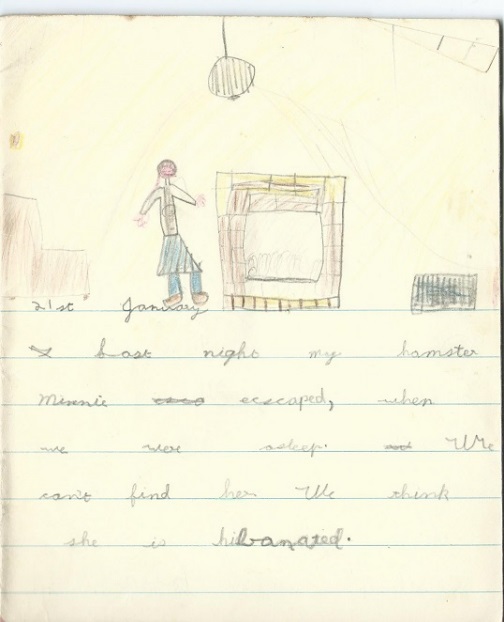 21st January
Last night my hamster
Minnie ecscaped, when
we were asleep. We
can't find her We think
she is hibanated.